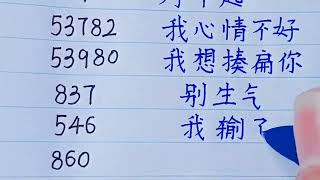 53782 我心情不好
53980 我想揍扁你
837 别生气
546 我输了
860